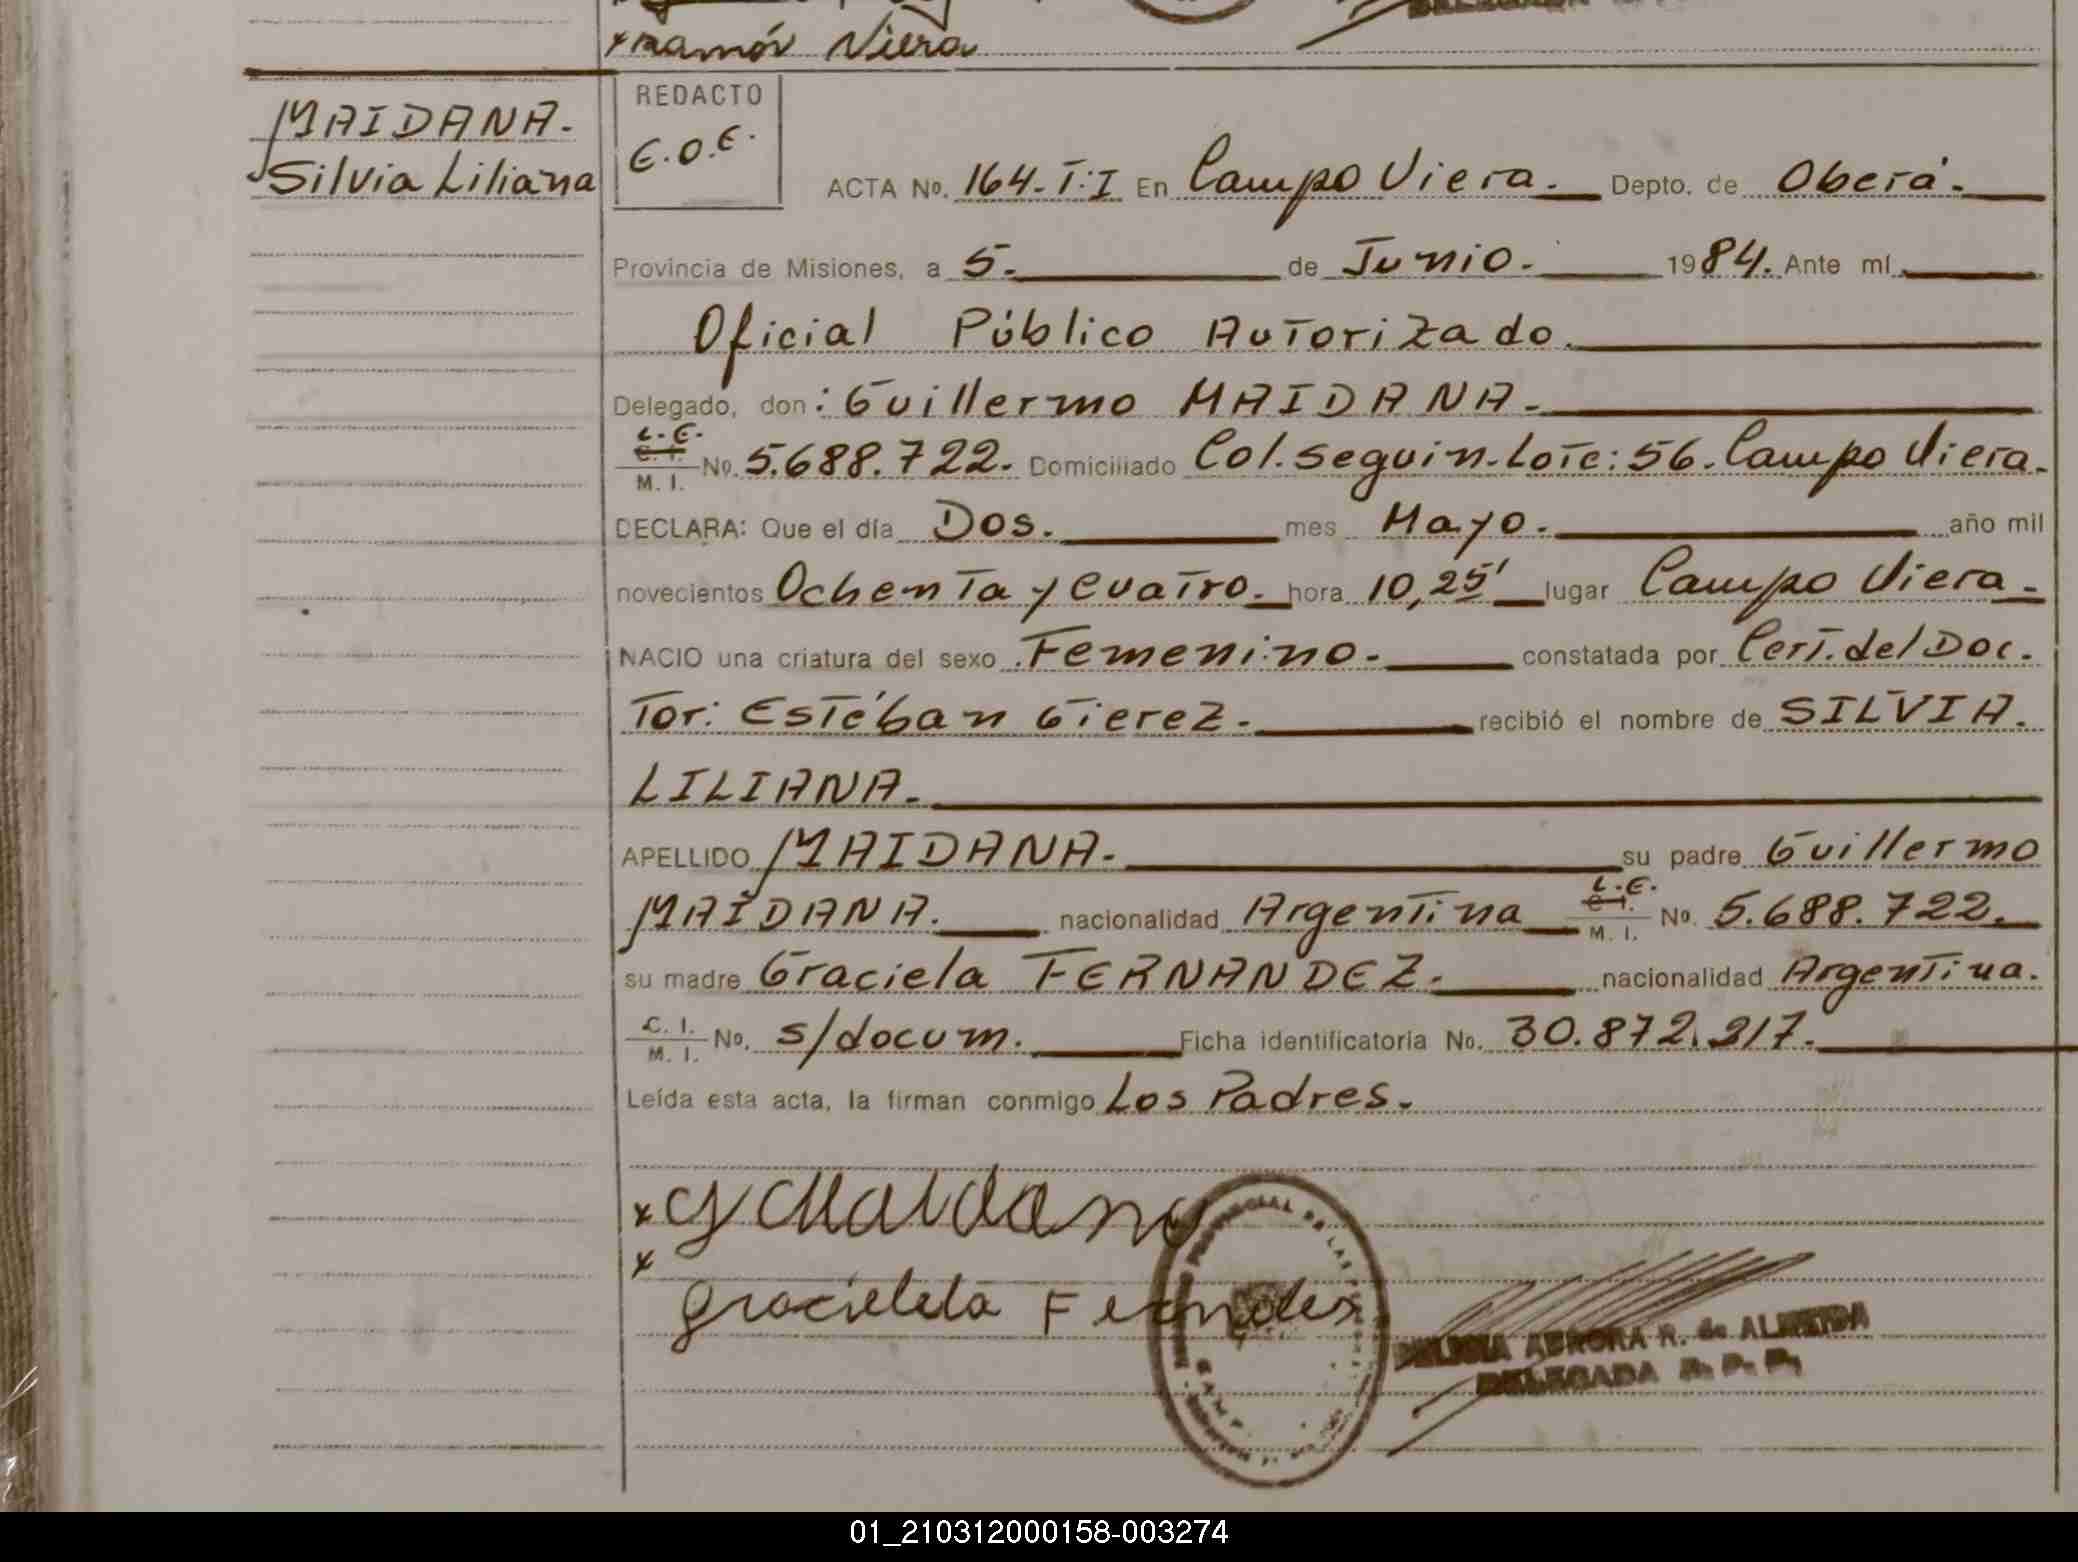 Ramón Viera
MAIDANA.
Silvia Liliana
REDACTO
E.O.E.
ACTA No. 164. T:I En Campo Viera. Depto. de Oberá.
Provincia de Misiones, a 5. de Junio. 1984. Ante mí
Oficial Público Autorizado.
Delegado, don: Guillermo MAIDANA.
L.E.
C. I.
M. I. No. 5.688.722. Domiciliado Col. Seguin. Lote: 56. Campo Viera.
DECLARA: Que el día Dos. mes Mayo. año mil
novecientos Ochenta y Cuatro. hora 10,25' lugar Campo Viera.
NACIO una criatura del sexo Femenino. constatada por Cert. del Doc.
Tor: Estéban Gierez. recibió el nombre de SILVIA.
LILIANA.
APELLIDO MAIDANA. su padre Guillermo
MAIDANA. nacionalidad Argentina L.E. C. I. M. I. No. 5.688.722.
su madre Graciela FERNANDEZ. nacionalidad Argentina.
C. I. M. I. No. s/docum. Ficha identificatoria No. 30.872.217.
Leída esta acta, la firman conmigo Los Padres.
x G Maidana
x
gracielela Fernandes
AURORA R. de ALMEIDA
DELEGADA R. P. P.
01_210312000158-003274